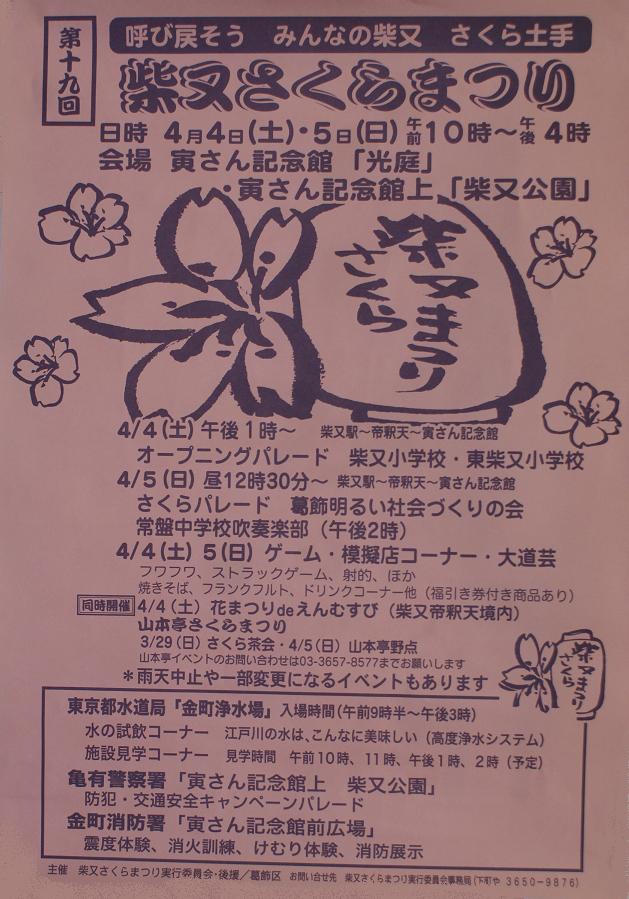 第十九回
呼び戻そう みんなの柴又 さくら土手
柴又さくらまつり
日時 4月4日(土)・5日(日) 午前10時~午後4時
会場 寅さん記念館「光庭」
・寅さん記念館上「柴又公園」
柴又まつり
さくら
4/4(土)午後1時~ 柴又駅~帝釈天~寅さん記念館
オープニングパレード 柴又小学校・東柴又小学校
4/5(日)昼12時30分~ 柴又駅~帝釈天~寅さん記念館
さくらパレード 葛飾明るい社会づくりの会
常盤中学校吹奏楽部(午後2時)
4/4(土) 5(日) ゲーム・模擬店コーナー・大道芸
フワフワ、ストラックゲーム、射的、ほか
焼きそば、フランクフルト、ドリンクコーナー他(福引き券付き商品あり)
同時開催 4/4(土) 花まつりdeえんむすび(柴又帝釈天境内)
山本亭さくらまつり
3/29(日)さくら茶会・4/5(日)山本亭野点
山本亭イベントのお問い合わせは03-3657-8577までお願いします
*雨天中止や一部変更になるイベントもあります
柴又まつり
さくら
東京都水道局『金町浄水場』入場時間(午前9時半~午後3時)
水の試飲コーナー 江戸川の水は、こんなに美味しい(高度浄水システム)
施設見学コーナー 見学時間 午前10時、11時、午後1時、2時(予定)
亀有警察署「寅さん記念館上 柴又公園」
防犯・交通安全キャンペーンパレード
金町消防署「寅さん記念館前広場」
震度体験、消火訓練、けむり体験、消防展示
主催 柴又さくらまつり実行委員会・後援/葛飾区 お問い合せ先 柴又さくらまつり実行委員会事務局(下町や 3650-9876)